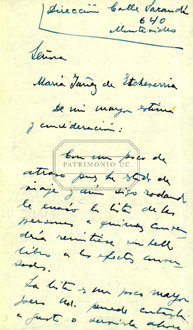 Dirección Calle Sarandí
640
Montevideo
Señora
María Yañez de Etcheverria
De mi mayor estima
y consideración:
Con un poco de
atraso pues he estado de
viaje y aún sigo rodando
le envío la lista de las
personas a quienes
remitirse su bello
libro a los efectos
La lista es un poco mayor
pero Ud. puede
a gusto o
PATRIMONIO UC